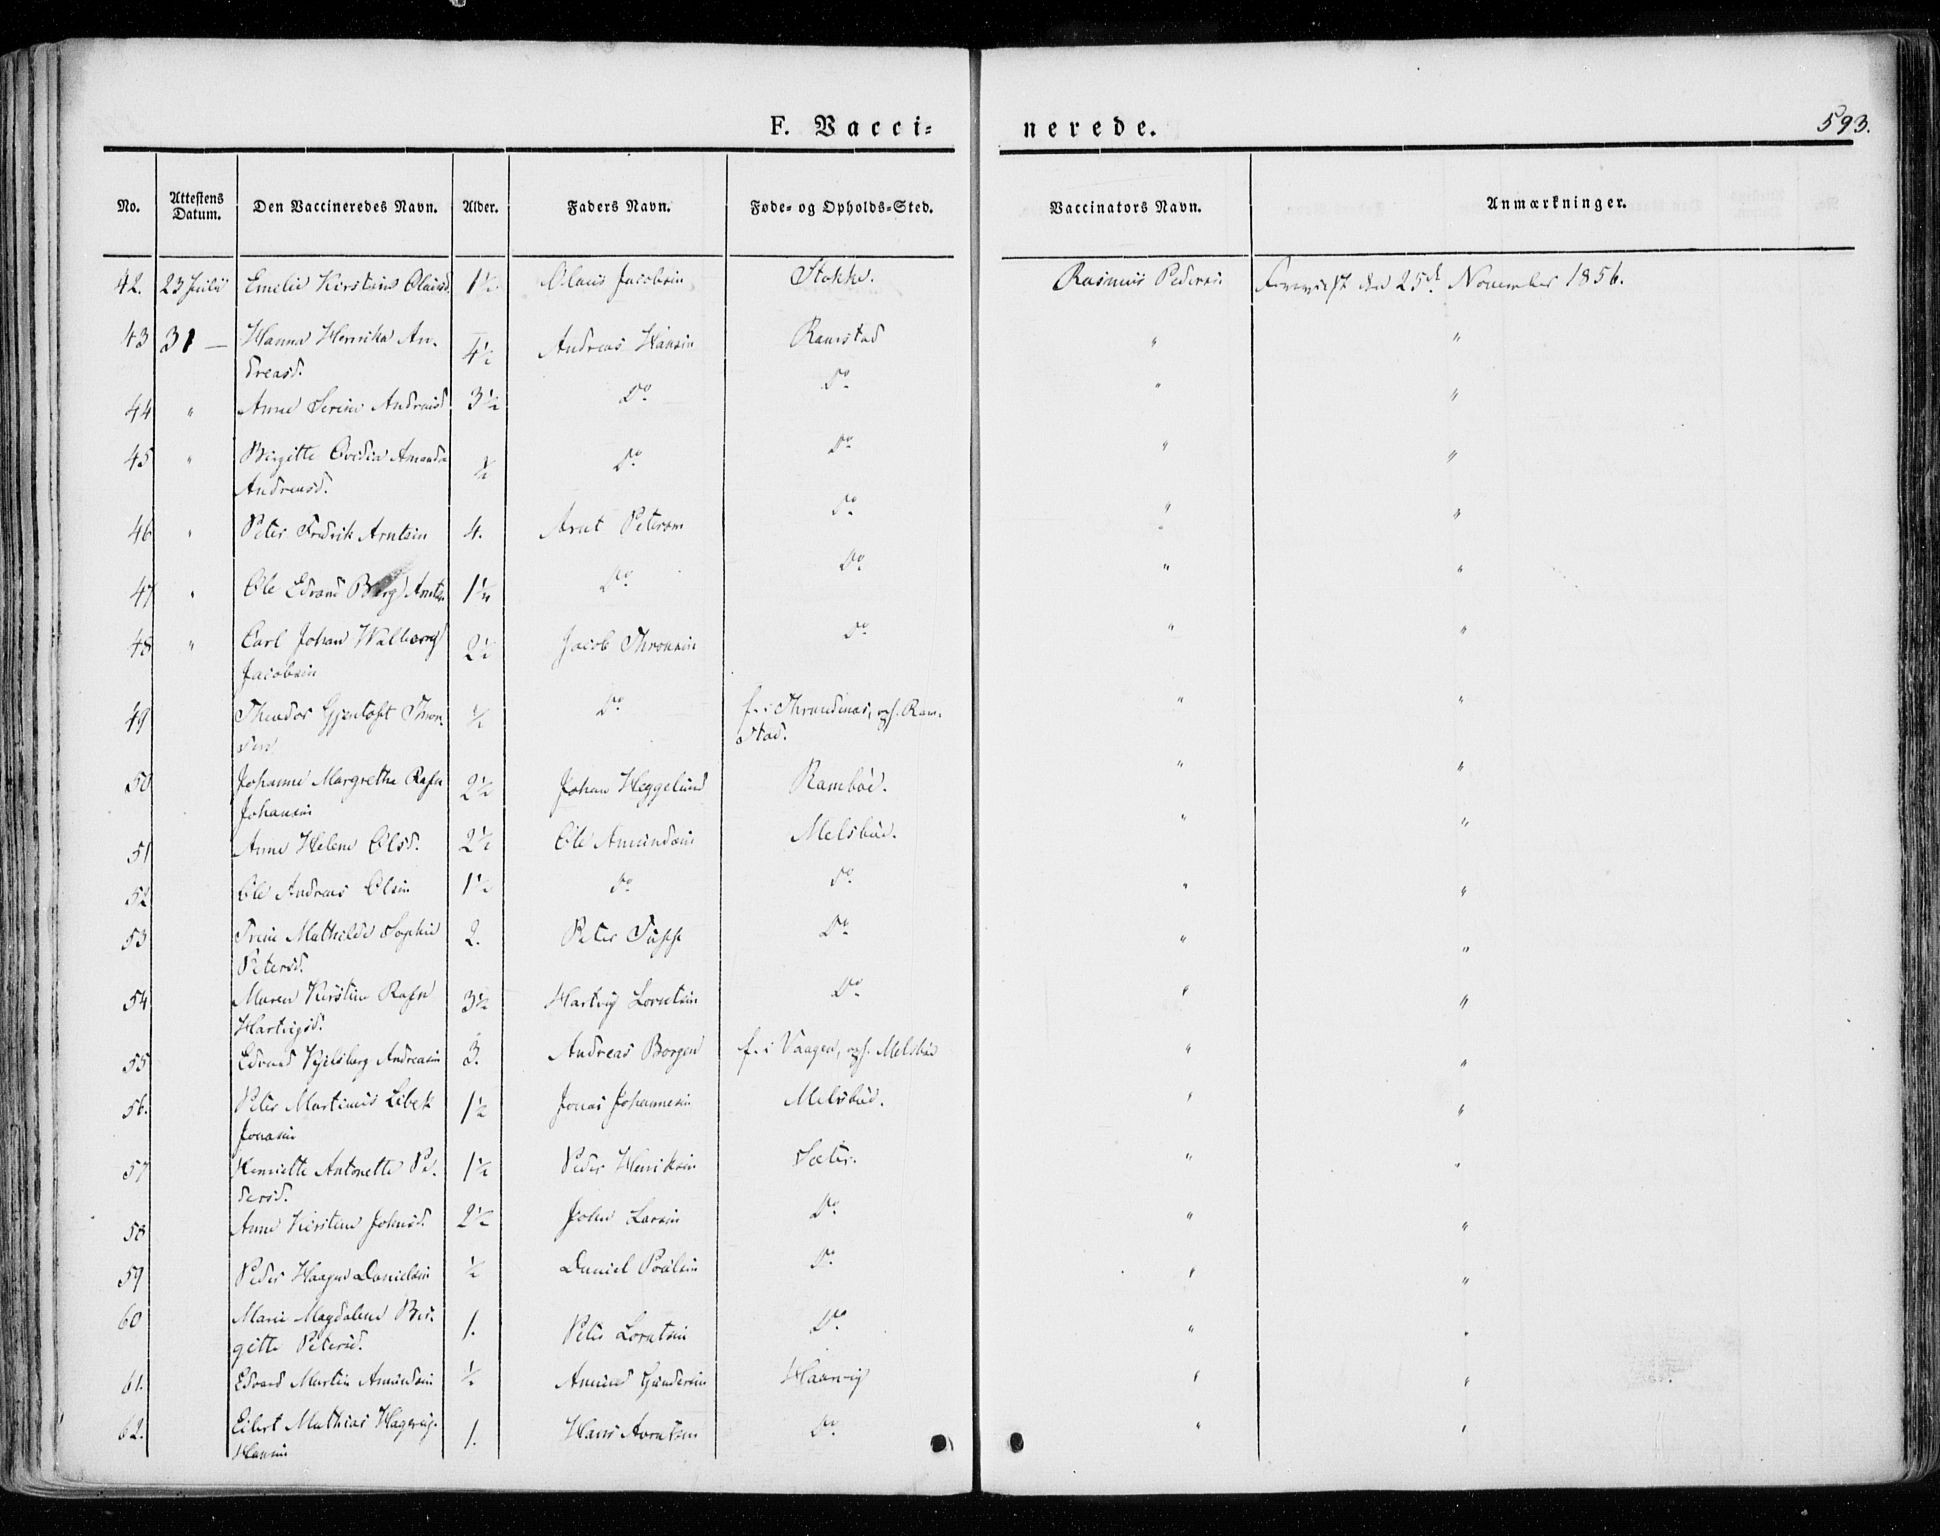 F. Vacci=
nerede.
593.
No. Attestens Datum. Den Vaccineredes Navn. Alder. Faders Navn. Føde- og Opholds-Sted. Vaccinators Navn. Anmærkninger.
42. 23 Julii Emelie Kirstine Olausd. 1½ Olaus Jacobsen Stokke. Rasmus Pedersen den 25de November 1856.
43 31 — Hanna Henrika An- 4½ Andreas Hansen Ramstad " "
dreasd.
44 " Anne Serine Andreasd. 3½ Do Do " "
45 " Birgitte Ovidia Amanda ½ Do Do " "
Andreasd.
46 " Peter Fredrik Arntsen 4. Arnt Petersen Do " "
47 " Ole Edvard Berg Arntsen 1½ Do Do " "
48 " Carl Johan Walberg 2½ Jacob Thronsen Do " "
Jacobsen
49 Theodor Gjentoft Thron- ½ Do f. i Throndenæs, oph. Ram- " "
sen stad.
50 Johanne Margrethe Rafn 2½ Johan Heggelund Ramböe. " "
Johansen
51 Anne Helene Olsd. 2½ Ole Amundsen Melsbue. " "
52 Ole Andreas Olsen 1½ Do Do " "
53 Trine Mathilde Sophie 2. Peter Do " "
Petersd.
54 Maren Kirstine Rafn 3½ Hartvig Lorntsen Do " "
Hartvigsd.
55 Edvard Kjelsberg Andreasen 3. Andreas Borgen f. i Vaagen, oph. Melsbue " "
56. Peter Martinus Libek 1½ Jonas Johannesen Melsbue. " "
Jonasen
57 Henriette Antonette Pe- 1½ Peder Henriksen Sæter. " "
dersd.
58 Anne Kirstine Johnsd. 2½ John Larsen Do " "
59 Peder Haagen Danielsen ½ Daniel Poulsen Do " "
60 Marie Magdalene Bir- 1. Peter Lorntsen Do " "
gitte Petersd.
61. Edvard Martin Amundsen ½ Amund Gundersen Haarvig " "
62. Eilert Mathias Hagerup 1. Hans Arntsen Do " "
Hansen